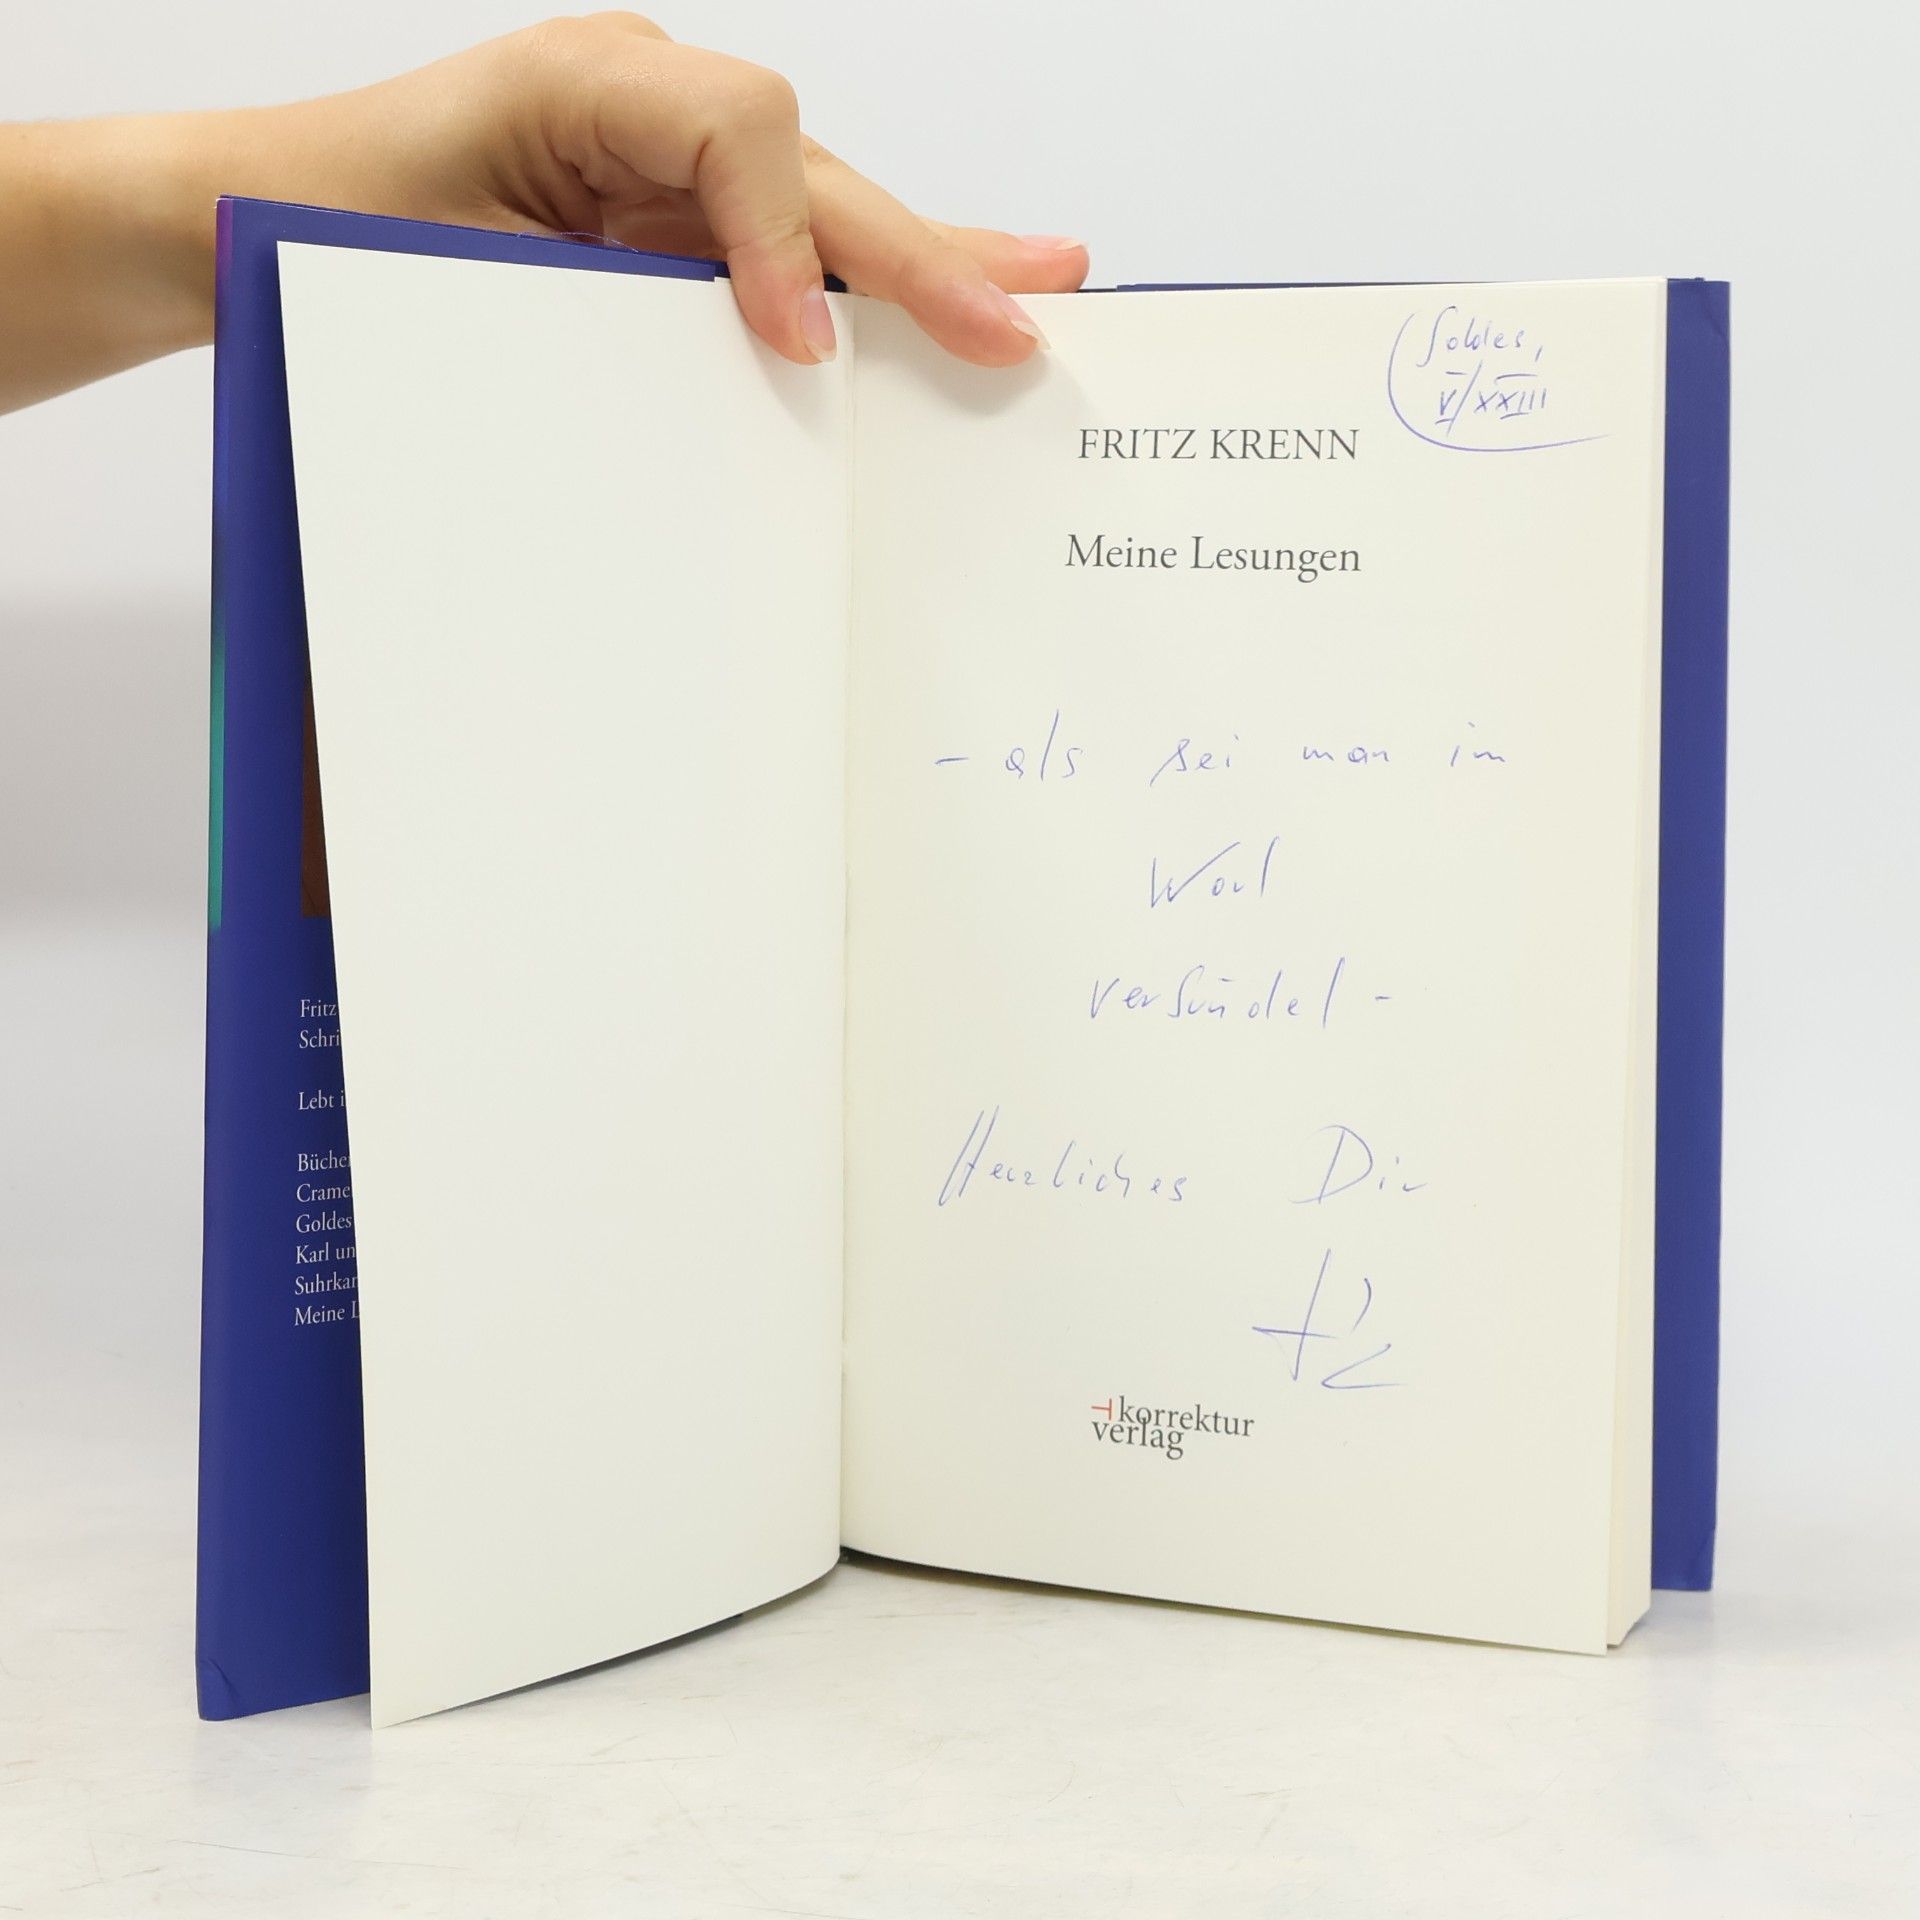 Soldes,
V/XXIII
FRITZ KRENN
Meine Lesungen
– als sei man im
Wort
verkündet –
Herzliches Dir
korrektur
verlag
Fritz
Schri
Lebt i
Büche
Crame
Goldes
Karl un
Suhrkam
Meine L